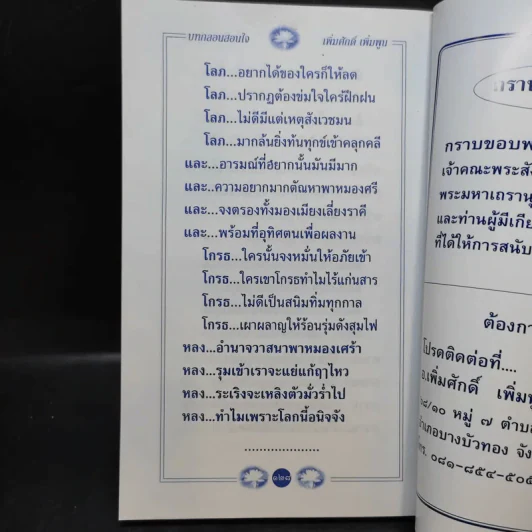 บทกลอนสอนใจ
เพิ่มศักดิ์ เพิ่มพูน
โลภ...อยากได้ของใครก็ให้ลด
โลภ...ปรากฏต้องข่มใจใคร่ฝึกฝน
โลภ...ไม่ดีมีแต่เหตุสังเวชมน
โลภ...มากล้นยิ่งท้นทุกข์เข้าคลุกคลี
และ...อารมณ์ที่อยากนั้นมันมีมาก
และ..ความอยากมากตัณหาพาหมองศรี
และ...จงตรองทั้งมองเมียงเลี่ยงราคี
และ...พร้อมที่อุทิศตนเพื่อผลงาน
โกรธ...ใครนั้นจงหมั่นให้อภัยเข้า
โกรธ...ใครเขาโกรธทำไมไร้แก่นสาร
โกรธ...ไม่ดีเป็นสนิมทิ่มทุกกาล
โกรธ...เผาผลาญให้ร้อนรุ่มดังสุมไฟ
หลง...อำนาจวาสนาพาหมองเศร้า
หลง...รุมเข้าเราจะแย่แก้ฤๅไหว
หลง...ระเริงจะเหลิงตัวมั่วร่ำไป
หลง...ทำไมเพราะโลกนี้อนิจจัง
.....................
๑๒๘
กราบ
กราบขอบพ
เจ้าคณะพระสัง
พระมหาเถรานุ
และท่านผู้มีเกีย
ที่ได้ให้การสนับ
ต้องกา
โปรดติดต่อที่....
อ.เพิ่มศักดิ์ เพิ่มพู
๘/๑๐ หมู่ ๗ ตำบล
อำเภอบางบัวทอง จัง
โทร. ๐๘๑-๘๕๔-๕๐๕